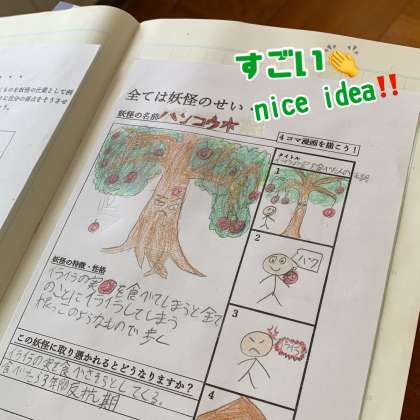 すごい👏
nice idea‼️
全ては妖怪のせい・
妖怪の名前 ハンコウ木
4コマ漫画を描こう！
タイトル
1
2
パク
3
イライラ
4
妖怪の特徴・性格
イライラの実を食べてしまうと全て
のことにイライラしてしまう
根っこのようなもので歩く
この妖怪に取り憑かれるとどうなりますか？
イライラの実を食べさせようとしてくる。
食べたら3年間反抗期